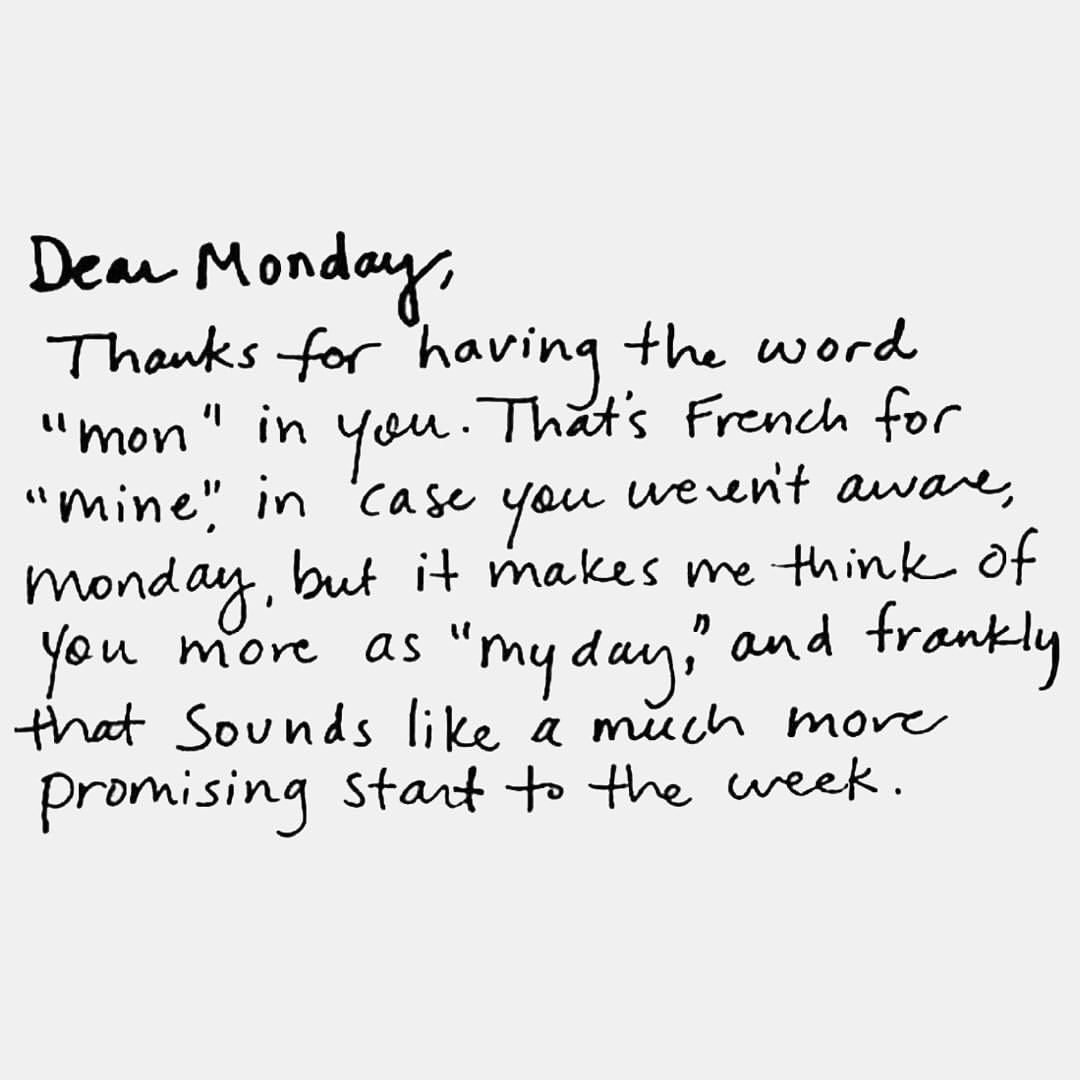 Dear Monday,
Thanks for having the word
"mon" in you. That's French for
"mine," in case you weren't aware,
monday, but it makes me think of
you more as "my day," and frankly
that sounds like a much more
promising start to the week.